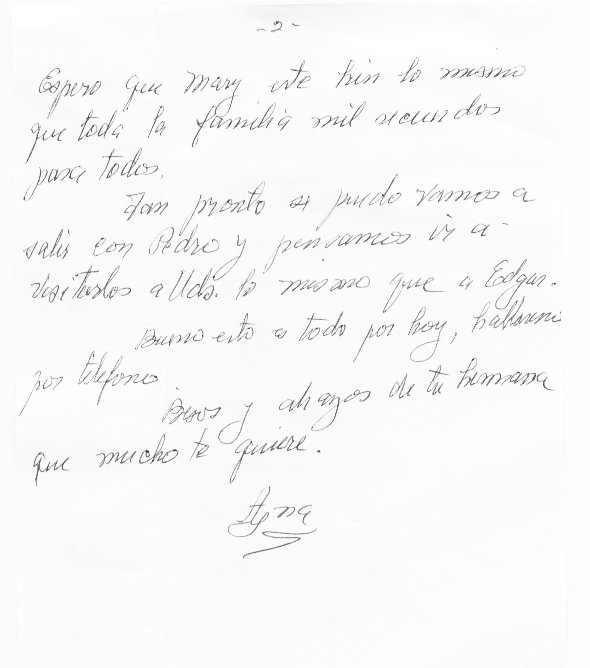 - 2 -
Espero que Mary este bien lo mismo
que toda la familia mil recuerdos
para todos.
Tan pronto se puedo vamos a
salir con Pedro y pensamos ir a
visitarlos a Uds. lo mismo que a Edgar.
Bueno esto es todo por hoy, hablame
por telefono.
Besos y abrazos de tu hermana
que mucho te quiere.